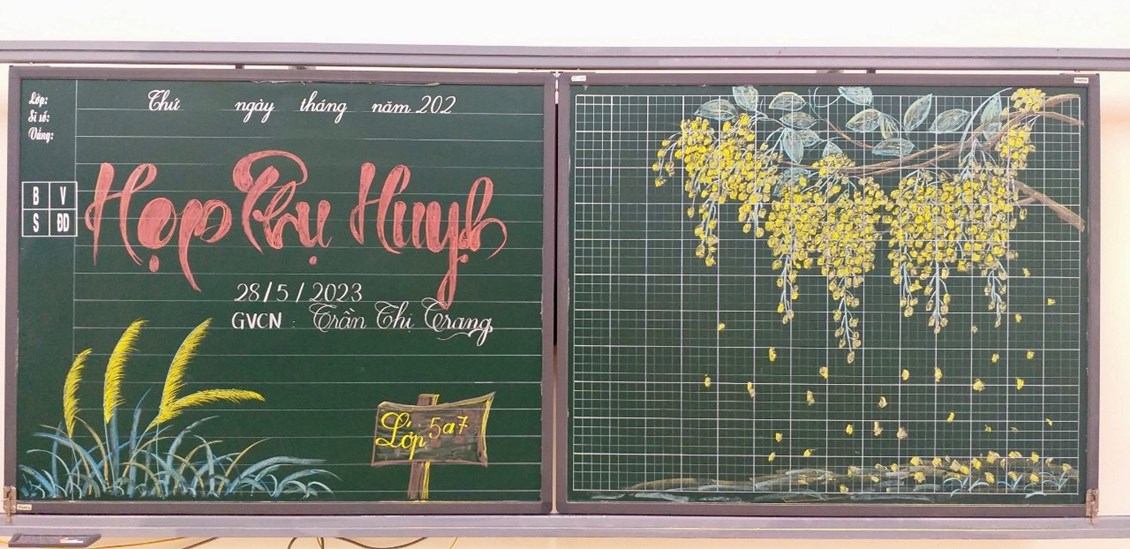 Thứ ngày tháng năm 202
Lớp:
Sĩ số:
Vắng:
B V
S ĐD
Họp Phụ Huynh
28/5/2023
GVCN : Trần Thị Trang
Lớp 5a7